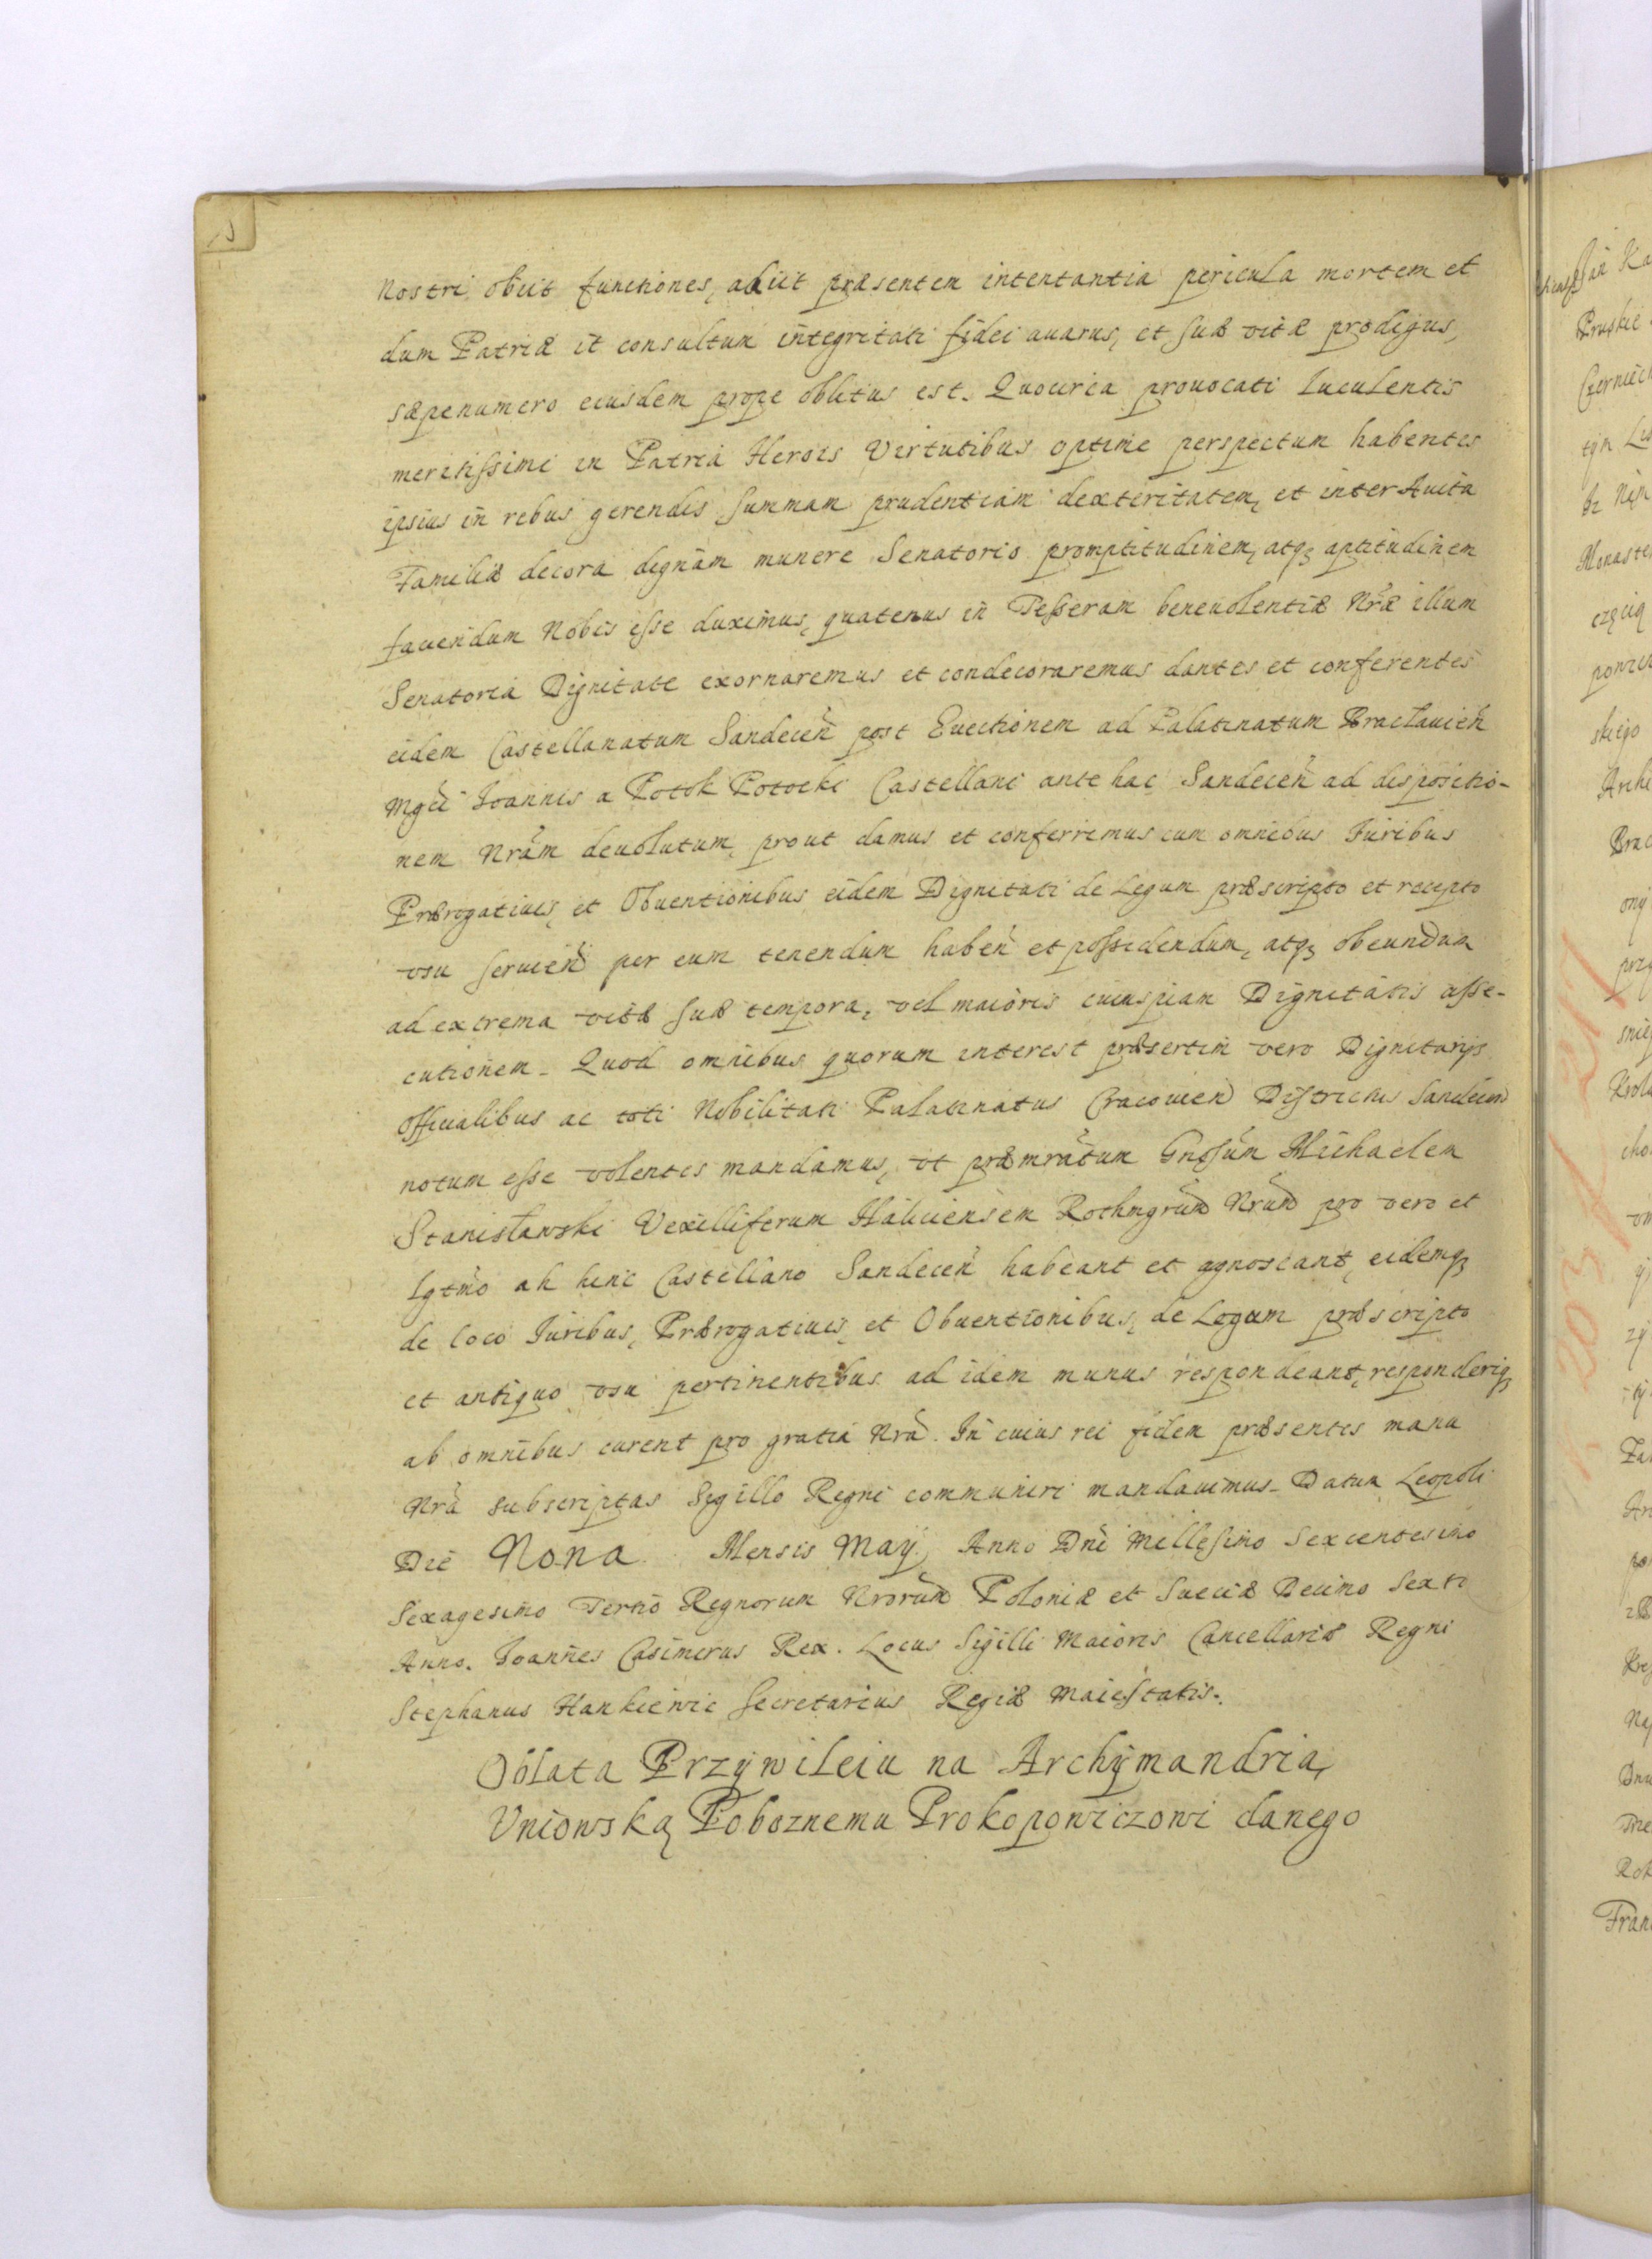 Nostri obiit functiones, adiit præsentem intentantia pericula mortem et
dum Patriæ it consultum integritati fidei auarus, et suæ vitæ prodigus,
sæpenumero eiusdem prope oblitus est. Quocirca prouocati luculentis
meritissimi in Patria Herois Virtutibus optime perspectum habentes
ipsius in rebus gerendis summam prudentiam dexteritatem, et inter Auita
Familiæ decora dignam munere Senatoris promptitudinem, atq3 aptitudinem
fauendum Nobis esse duximus, quatenus in Tesseram beneuolentiæ Nræ illum
Senatoria Dignitate exornaremus et condecoraremus dantes et conferentes
eidem Castellanatum Sandecen post Euectionem ad Palatinatum Bracłauien
Mgci Ioannis a Potok Potocki Castellani ante hac Sandecen ad dispositio-
nem Nram deuolutum, prout damus et conferrimus cum omnibus Iuribus
Prærogatiuis, et Obuentionibus eidem Dignitati de Legum præscripto et recepto
vsu seruien per eum tenendum haben et possidendum, atq3 obeundum
ad extrema vitæ suæ tempora, vel maioris cuiuspiam Dignitatis asse-
cutionem. Quod omnibus quorum interest præsertim vero Dignitarijs
Officialibus ac toti Nobilitati Palatinatus Cracouien Districtus Sandecen
notum esse volentes mandamus, vt præmratum Gnosum Michaelem
Stanisławski Vexilliferum Haliciensem Rothmgrum Nrum pro vero et
lgtmo ab hinc Castellano Sandecen habeant et agnoscant, eidemq3
de loco Iuribus, Prærogatiuis, et Obuentionibus, de Legum præscripto
et antiquo vsu pertinentibus ad idem munus respondeant, responderiq3
ab omnibus curent pro gratia Nra. In cuius rei fidem præsentes manu
Nra subscriptas Sigillo Regni communiri mandauimus. Datum Leopoli
Die Nona Mensis Maÿ Anno Dni Millesimo Sexcentesimo
Sexagesimo Tertio Regnorum Nrorum Poloniæ et Sueciæ Decimo Sexto
Anno. Ioannes Casimirus Rex. Locus Sigilli Maioris Cancellariæ Regni
Stephanus Hankiewic Secretarius Regiæ Maiestatis.
Oblata Przÿwileiu na Archÿmandrią
Vniowską Poboznemu Prokopowiczowi danego